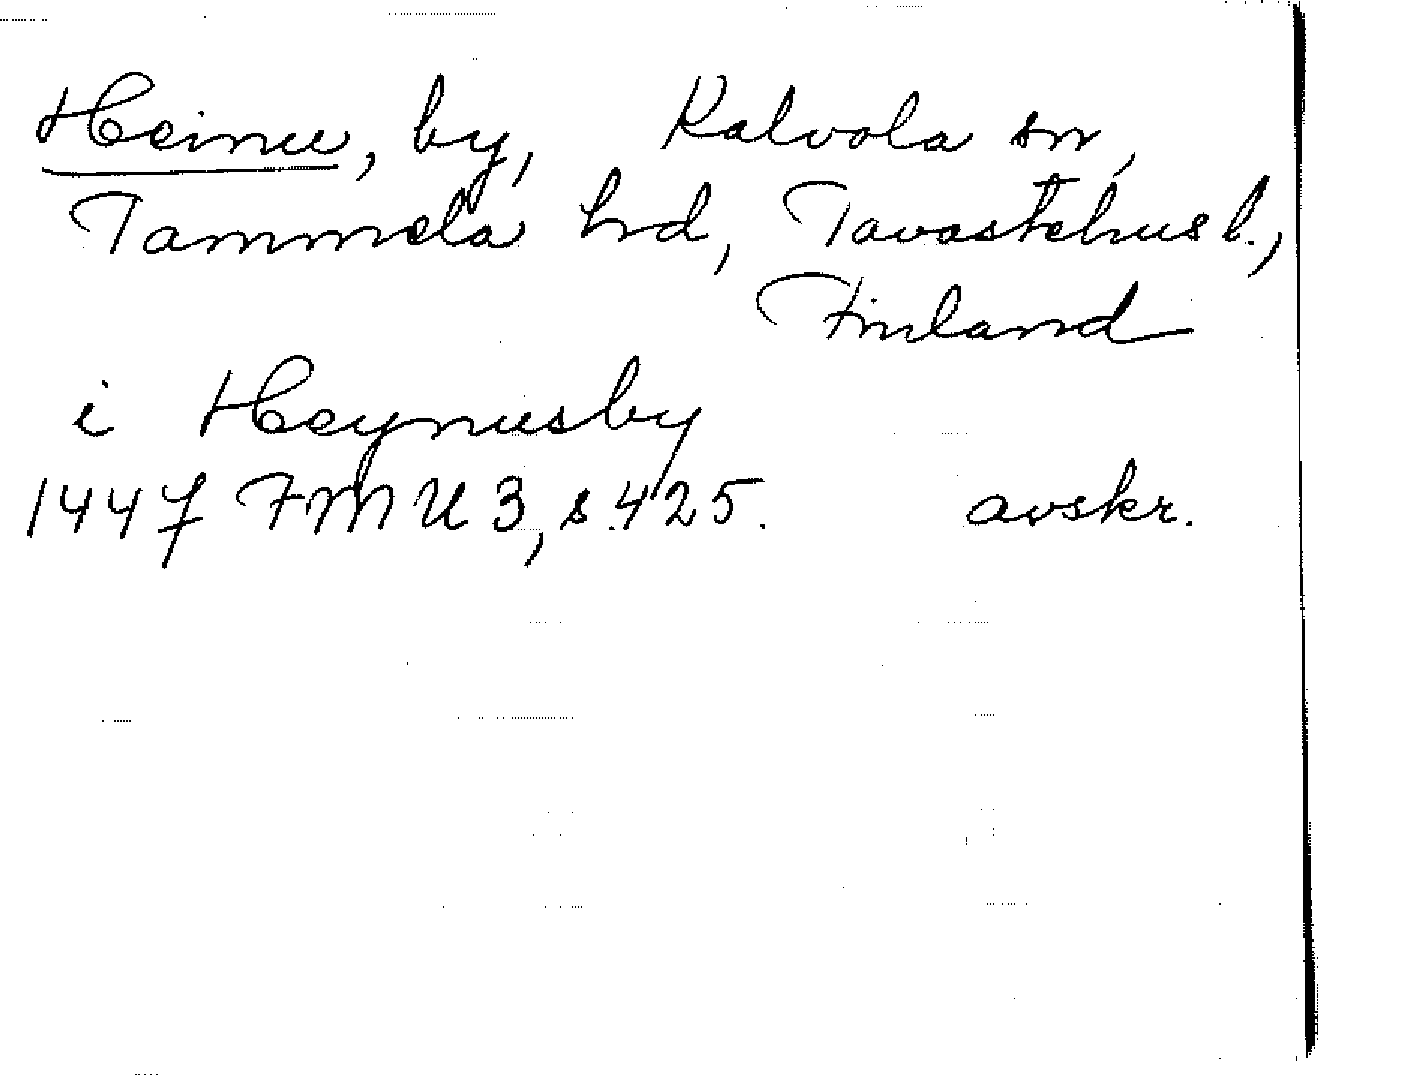 Heinu, by, Kalvola sn,
Tammela hrd, Tavastehus l.,
Finland
i Heynusby
1447 FMU 3, s. 425. avskr.